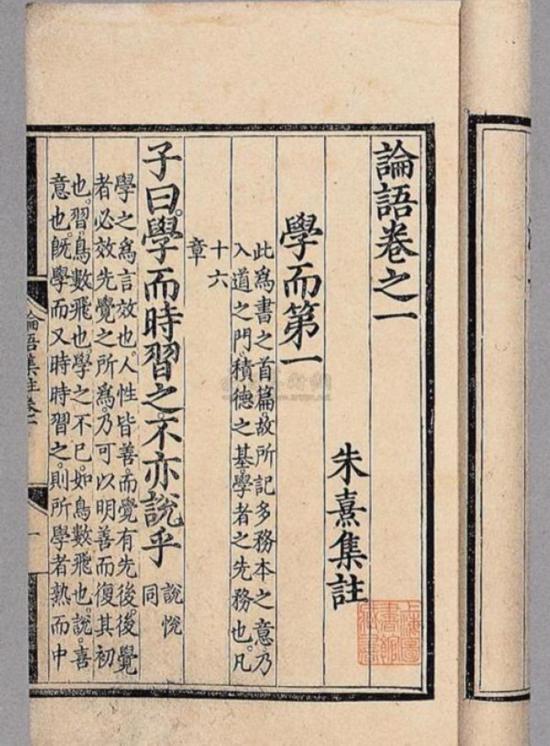 論語卷之一
朱熹集註
學而第一
此爲書之首篇。故所記多務本之意。乃
入道之門。積德之基。學者之先務也。凡
十六
章
子曰。學而時習之。不亦說乎
說悅
同
學之爲言效也。人性皆善。而覺有先後。後覺
者必效先覺之所爲。乃可以明善而復其初
也。習。鳥數飛也。學之不已。如鳥數飛也。說。喜
意也。旣學而又時時習之。則所學者熟。而中
論語集註卷一
一